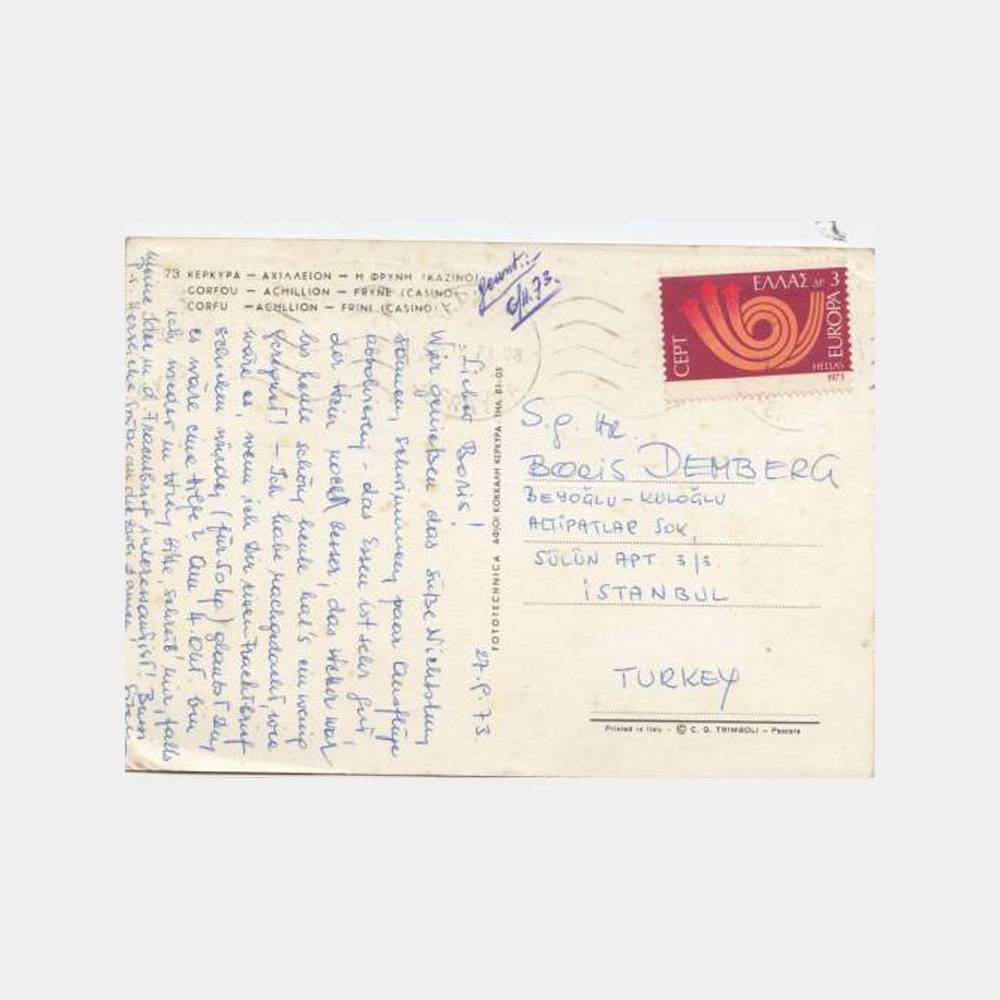 73 ΚΕΡΚΥΡΑ – ΑΧΙΛΛΕΙΟΝ – Η ΦΡΥΝΗ (ΚΑΖΙΝΟ)
CORFOU – ACHILLION – FRYNE (CASINO)
CORFU – ACHILLION – FRINI (CASINO)
6/11.73.
ΕΛΛΑΣ ΔΡ 3
CEPT
EUROPA
HELLAS
1973
27.9.73.
Lieber Boris!
Wir genießen das süße Nichtstun,
Sonnen, schwimmen, paar Ausflüge
absolvieren, - das Essen ist sehr gut,
der Wein noch besser, das Wetter war
bis heute schön, heute hat's ein wenig
- Ich habe nachgedacht, wie
wäre es, wenn ich Dir
schicken würde, (für Sokp) glaubst Du,
es wäre eine Hilfe? Am 4. Okt. bin
ich wieder in Wien, bitte, schreib' mir, falls
Deine in d. interessiert ist! Bussi
P.S. Herzliche Grüße an die zwei Damen
FOTOTECHNICA ΑΦΟΙ ΚΟΚΚΑΛΗ ΚΕΡΚΥΡΑ - ΤΗΛ. 81-05
S.g. Hr.
BORIS DEMBERG
BEYOĞLU - KULOĞLU
ALTIPATLAR SOK,
SÜLÜN APT 3/3.
İSTANBUL
TURKEY
Printed in Italy - © C. G. TRIMBOLI - Pescara